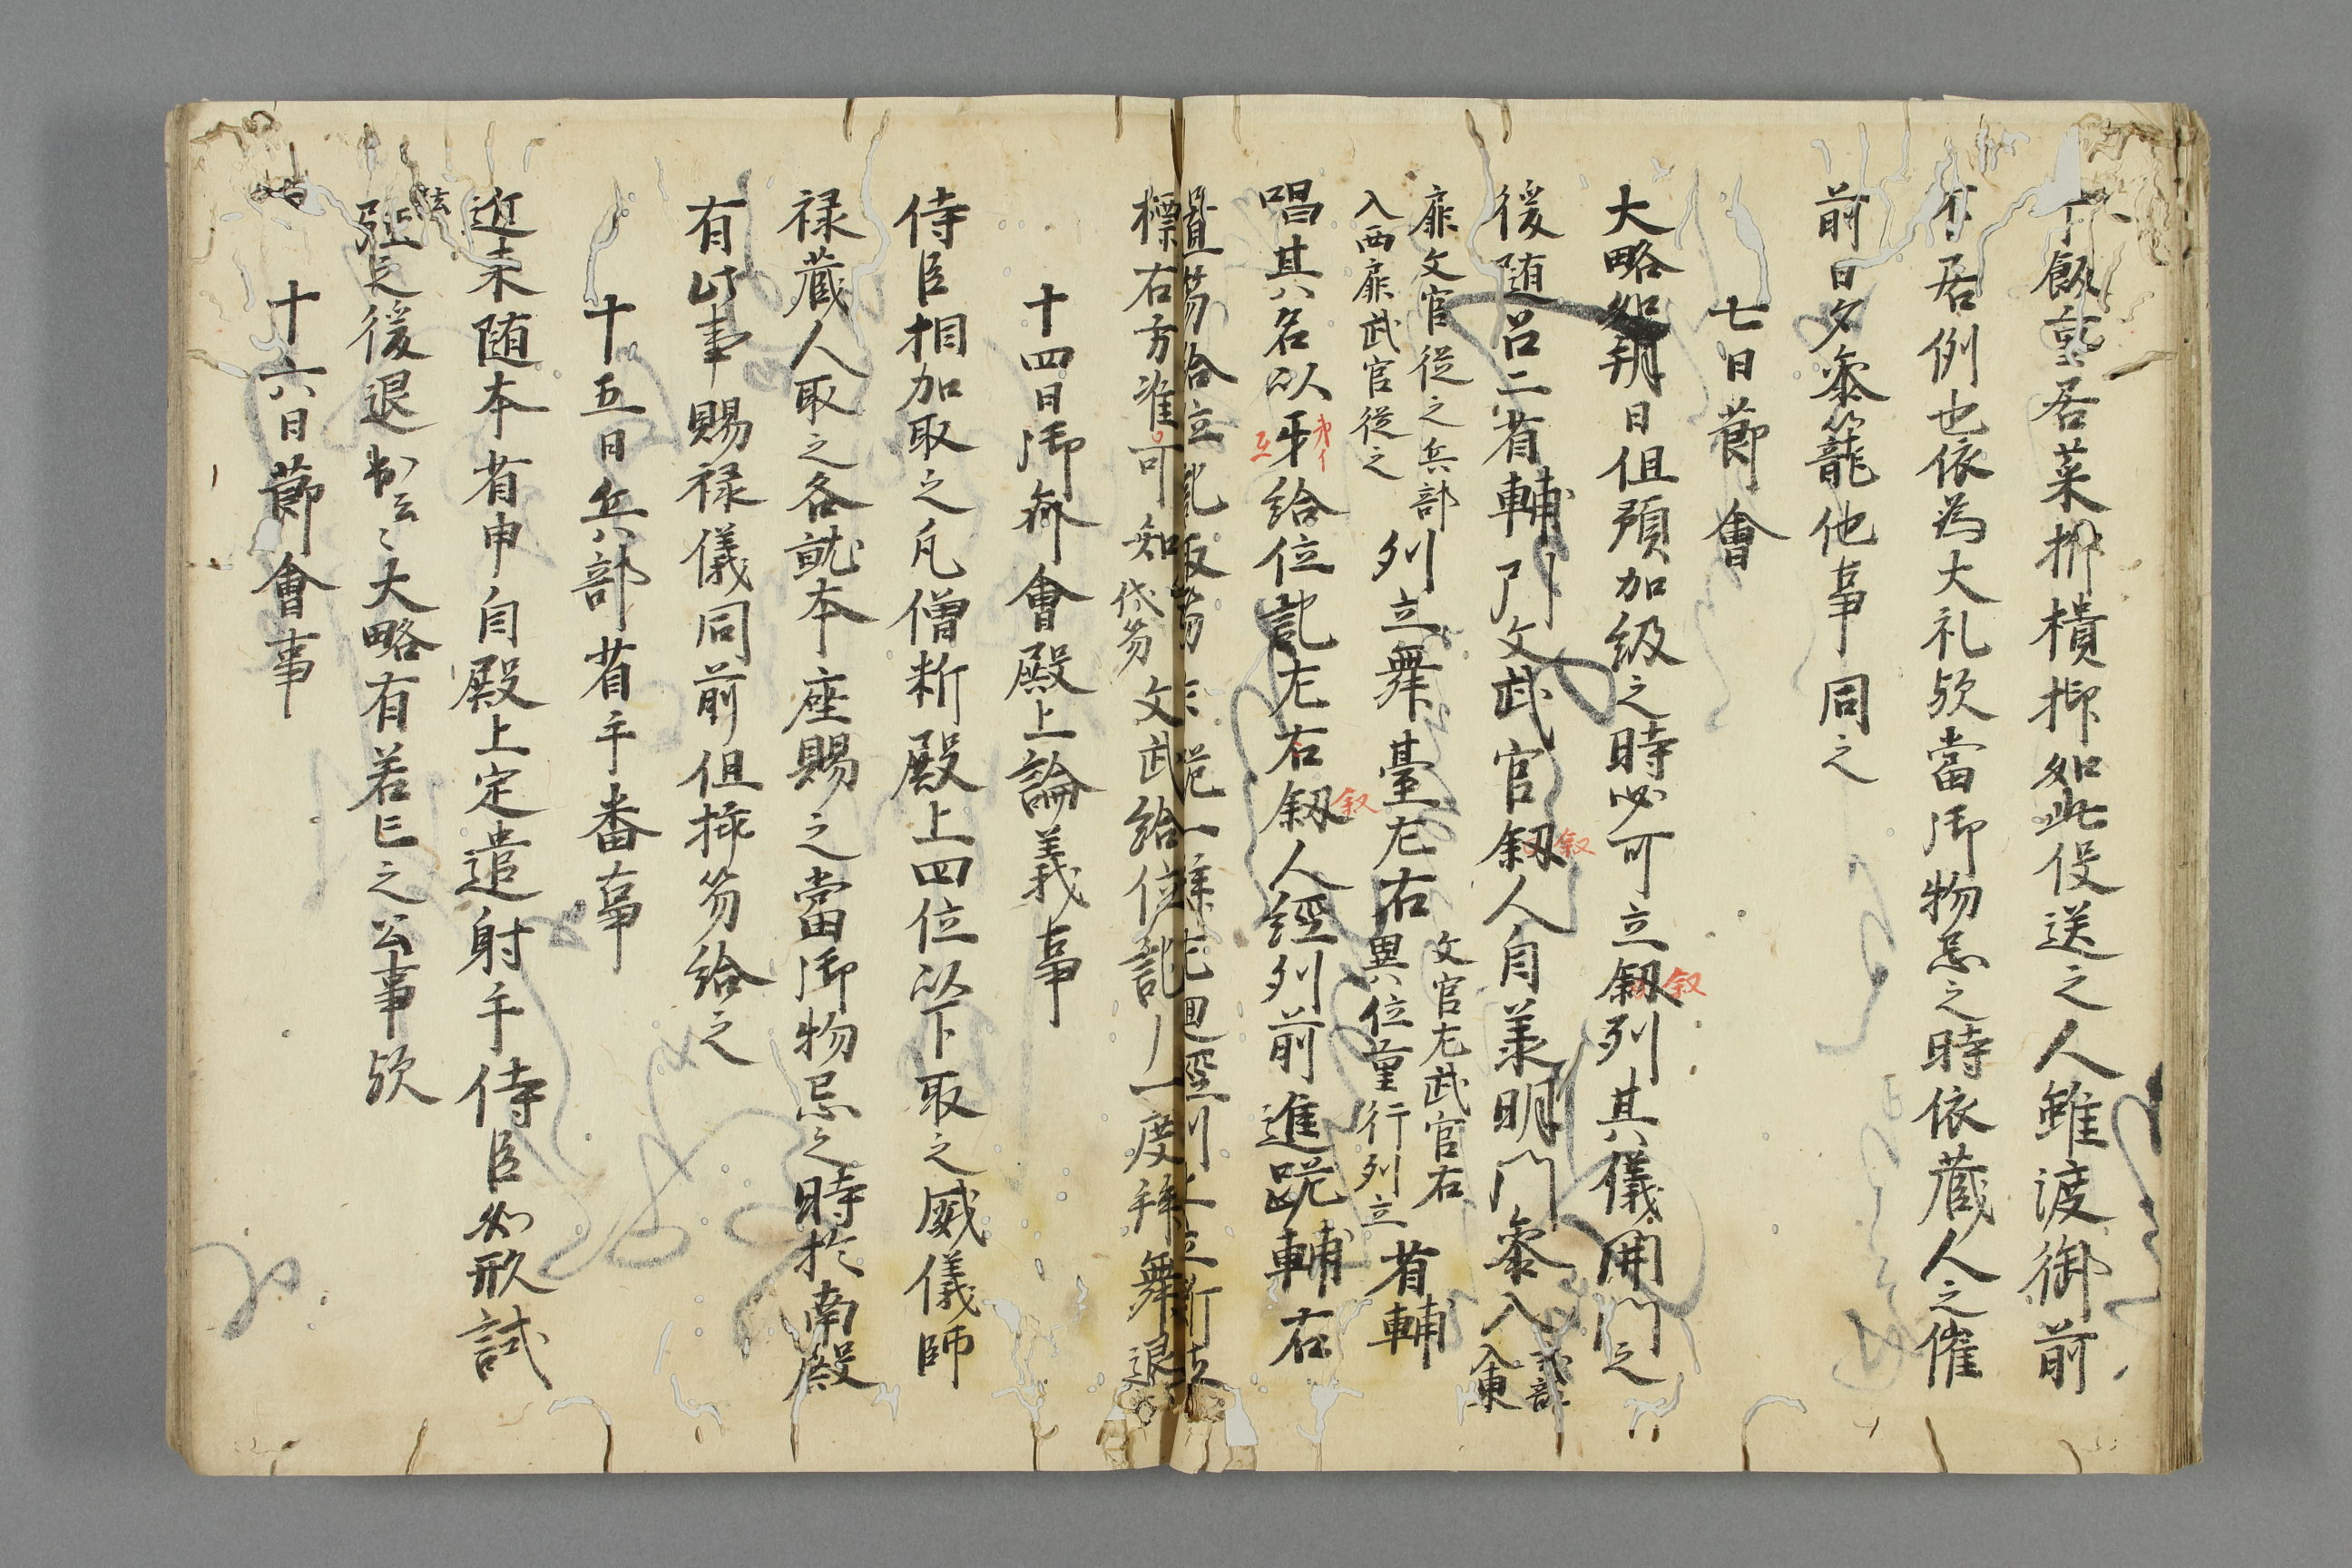 飯更居菜抑樻抑如此役送之人雖渡御前
不居例也依為大礼歟當御物忌之時依蔵人之催
前日夕参籠他事同之
七日節會
大略如朔日但預加級之時必可立叙列其儀開門之
叙
後随召二省輔引文武官叙人自兼明門参入式部入東
叙
扉文官従之兵部入西扉武官従之列立舞臺左右文官左武官右異位重行列立省輔
唱其名以牙給位記左右叙人經列前進跪輔右
互
叙
置笏給位記
標右方准可知代笏文武給位記一度拝舞退
十四日御斎會殿上論義事
侍臣相加取之凡僧新殿上四位以下取之威儀師
禄蔵人取之各就本座賜之當御物忌之時於南殿
有此事賜禄儀同前但挿笏給之
十五日兵部省手番事
近来随本省申自殿上定遣射手侍臣如形試
後退出云々大略有若亡之公事歟
十六日節會事